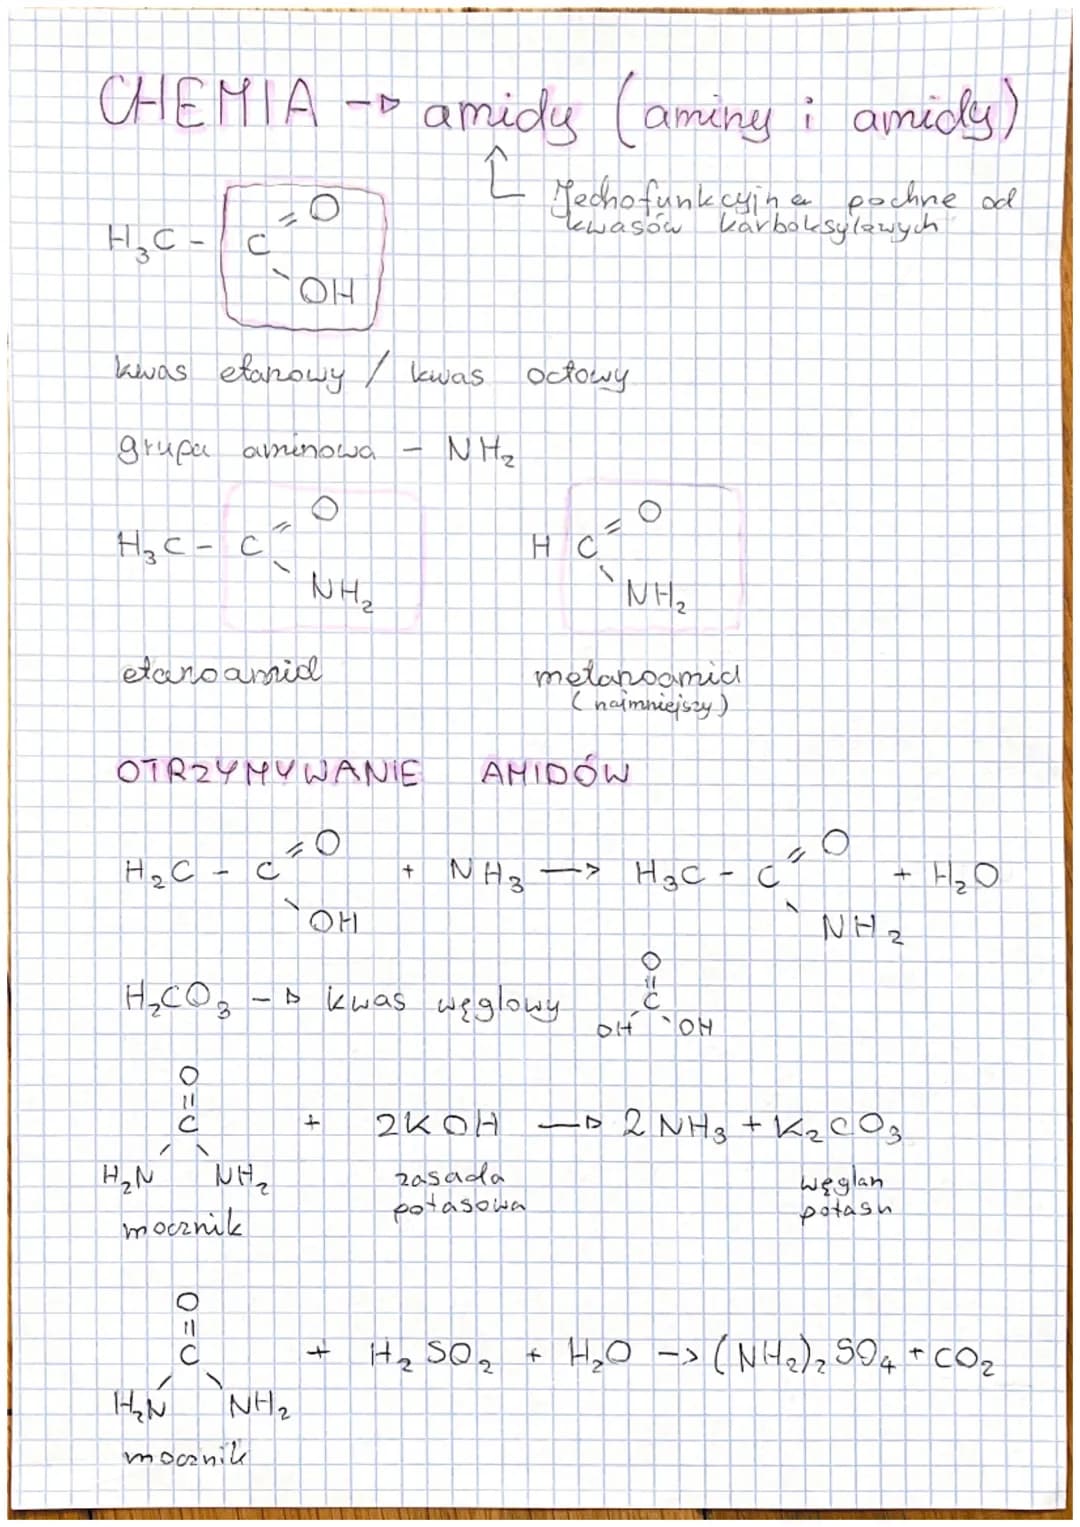 CHEMIA -> amidy (aminy i amidy)
Jednofunkcyjne pochne od
kwasów karboksylowych
H₃C - C
=O
- OH
kwas etanowy / kwas octowy
grupa aminowa - NH₂
H₃C - C =O
- NH₂
H C =O
- NH₂
etanoamid
metanoamid
(najmniejszy)
OTRZYMYWANIE AMIDÓW
H₂C - C =O - OH + NH₃ -> H₃C - C =O - NH₂ + H₂O
H₂CO₃ -> kwas węglowy
O
=
C
OH OH
O
=
C + 2KOH -> 2 NH₃ + K₂CO₃
H₂N NH₂
zasada
potasowa
węglan
potasu
mocznik
O
=
C + H₂SO₂ + H₂O -> (NH₂)₂SO₄ + CO₂
H₂N NH₂
mocznik